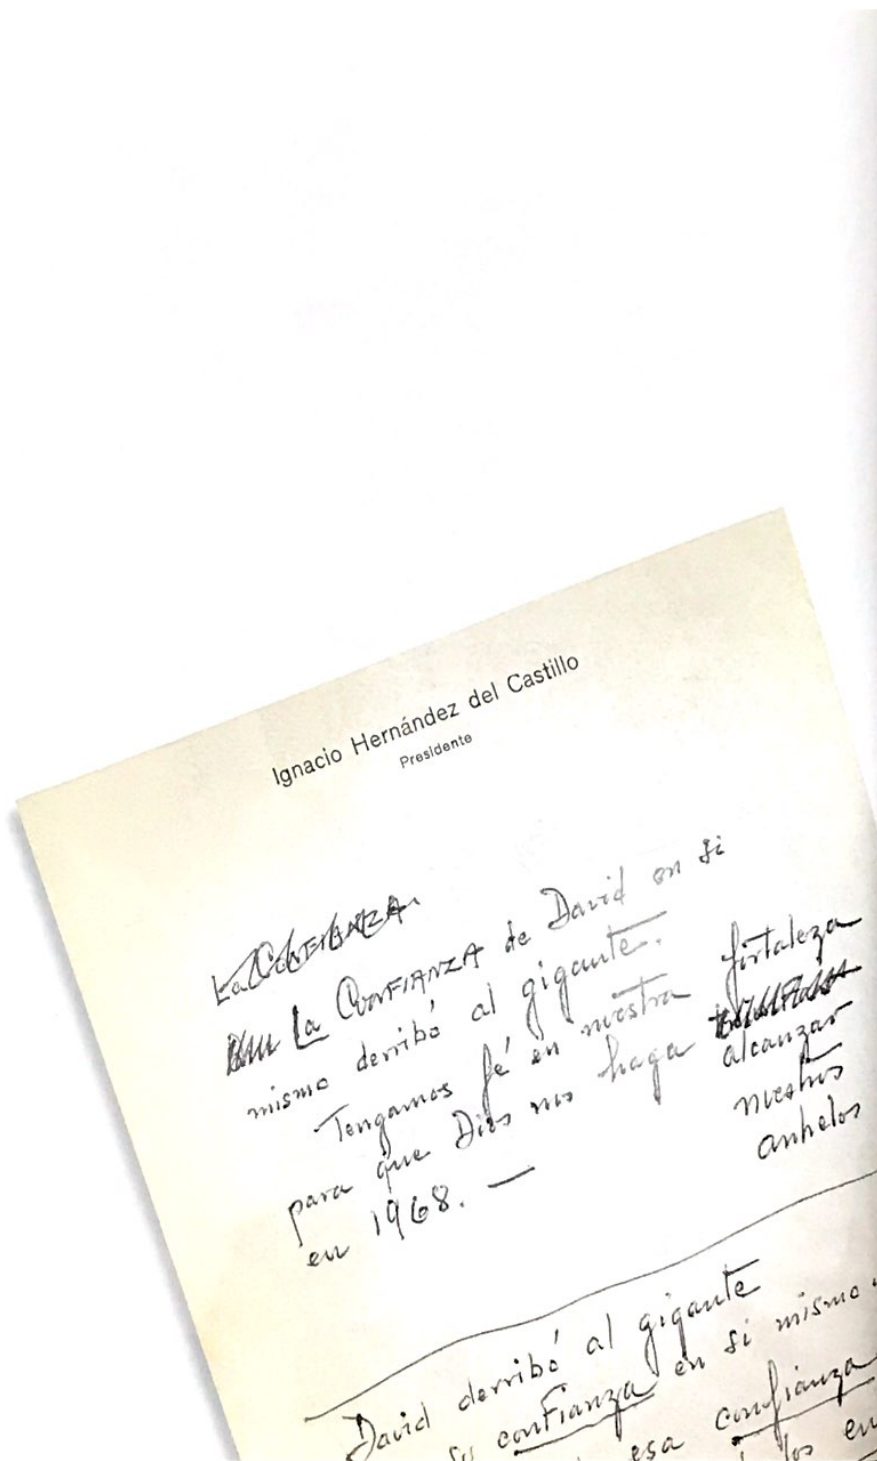 Ignacio Hernández del Castillo
Presidente
La CONFIANZA
La CONFIANZA de David en si
mismo derribó al gigante.
Tengamos fé en nuestra fortaleza
para que Dios nos haga alcanzar
nuestros
anhelos
en 1968. —
David derribó al gigante
su confianza en si mismo
esa confianza
los en